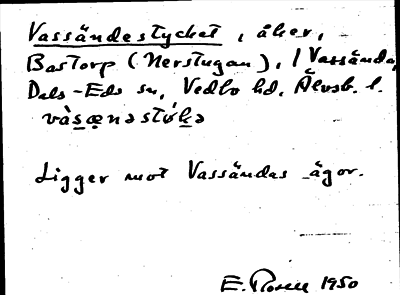 Vassändestycket, åker,
Bastorp (Nerstugan), / Vassända,
Dals-Eds sn, Vedbo hd, Älvsb. l.
vàsænəstýkə
Ligger mot Vassändas ägor.
E. Rosell 1950